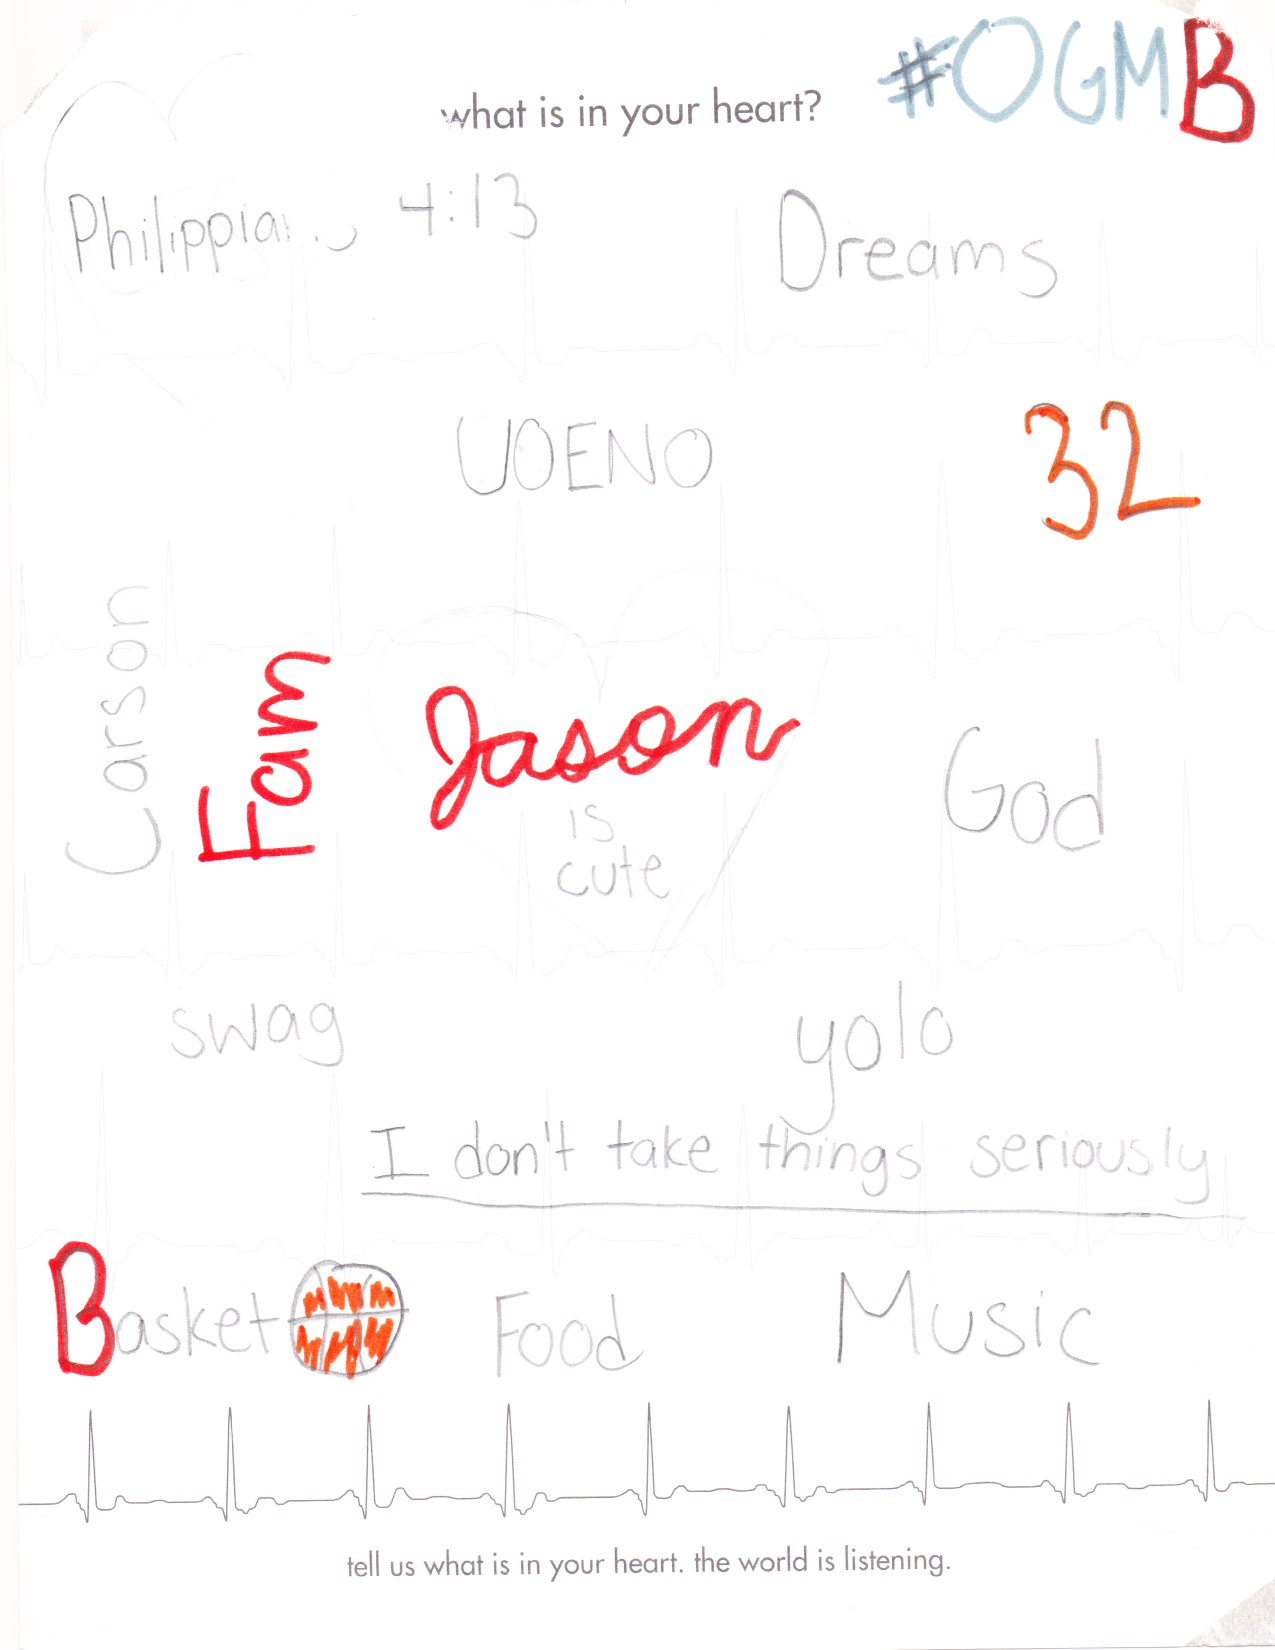 #OGMB
what is in your heart?
Philippians 4:13
Dreams
UOENO
32
Carson
Fam
Jason
is
cute
God
swag
yolo
I don't take things seriously
Basket
Food
Music
tell us what is in your heart. the world is listening.